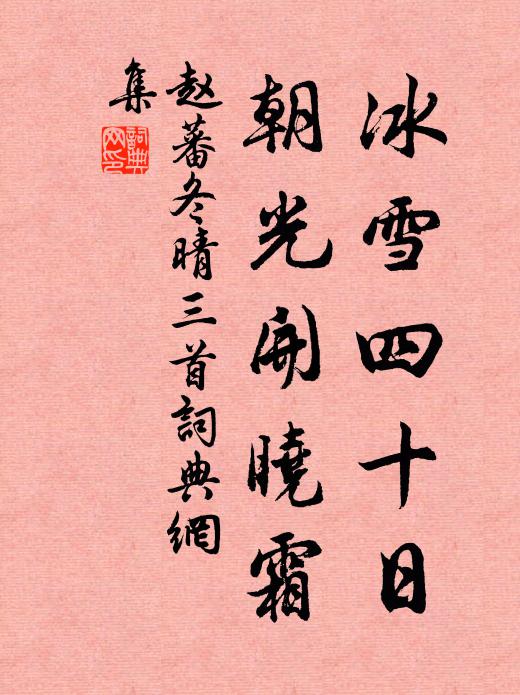 冰雪四十日
朝光開曉霜
赵蕃冬晴三首詞典網
集
詞典
网印